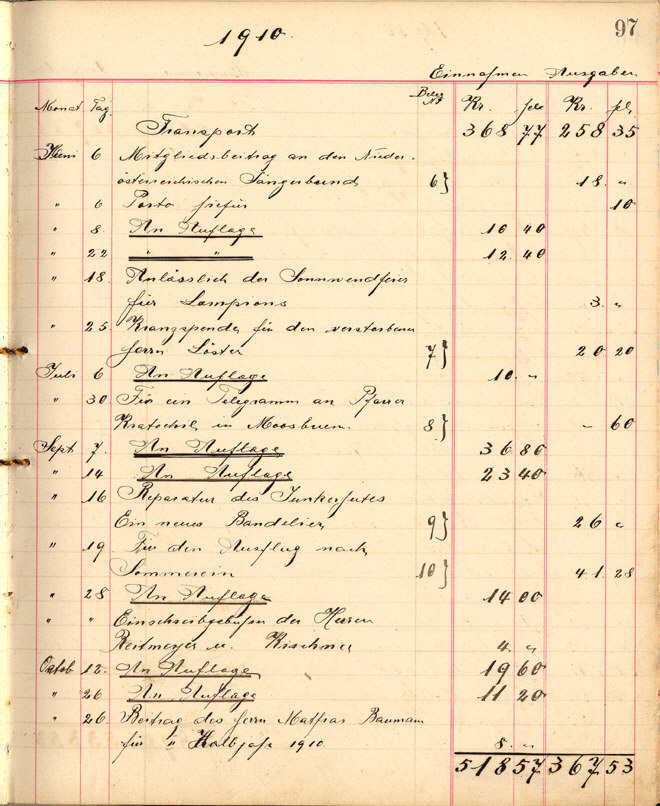 97
1910.
Einnahmen Ausgaben
Monat Tag Beleg Nr Kr. Kr.
Transport 368 77 258 35
Juni 6 Mitgliedsbeitrag an den Nieder-
österreichischen Sängerbund 6} 18 "
" 6 Porto hiefür 10
" 8 An Auflage 10 40
" 22 " " 12 40
" 18 Anlässlich der Sonnwendfeier
für Lampions 3. "
" 25. Kranzspende für den verstorbenen
Herrn Löster 7} 20 20
Juli 6 An Auflage 10. "
" 30 Für ein Telegramm an Pfarrer
in Moosbrunn 8} - 60
Sept. 7. An Auflage 36 80
" 14 An Auflage 23 40
" 16 Reparatur des Junkerhutes
Ein neues Bandelier 9} 26 "
" 19 Für den Ausflug nach
Sommerein 10} 41 28
" 28 An Auflage 14 00
" " Einschreibgebühren der Herren
Reitmeyer u. Kirschner 4. "
Octob 12. An Auflage 19 60
" 26 An Auflage 11 20
" 26. Beitrag des Herrn Mathias Baumann
für " Halbjahr 1910. 8. "
518 57 367 53